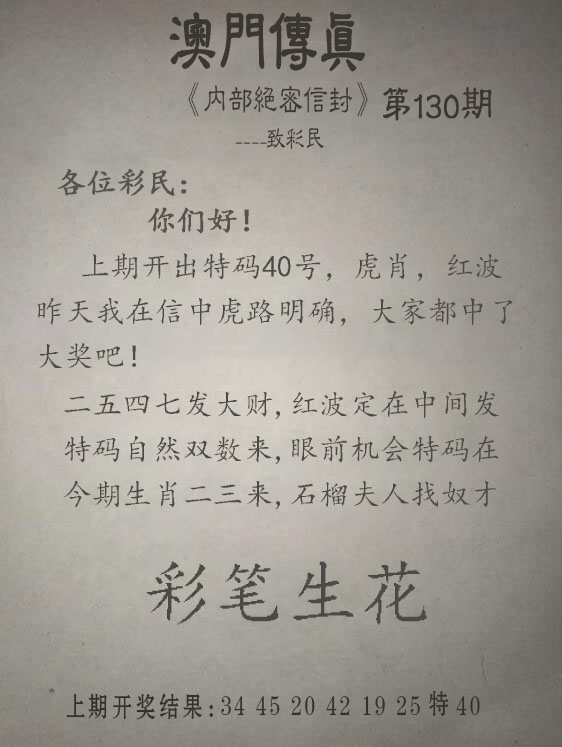 澳門傳真
《内部絕密信封》第130期
----致彩民
各位彩民：
你们好！
上期开出特码40号，虎肖，红波
昨天我在信中虎路明确，大家都中了
大奖吧！
二五四七发大财,红波定在中间发
特码自然双数来,眼前机会特码在
今期生肖二三来,石榴夫人找奴才
彩笔生花
上期开奖结果:34 45 20 42 19 25 特 40